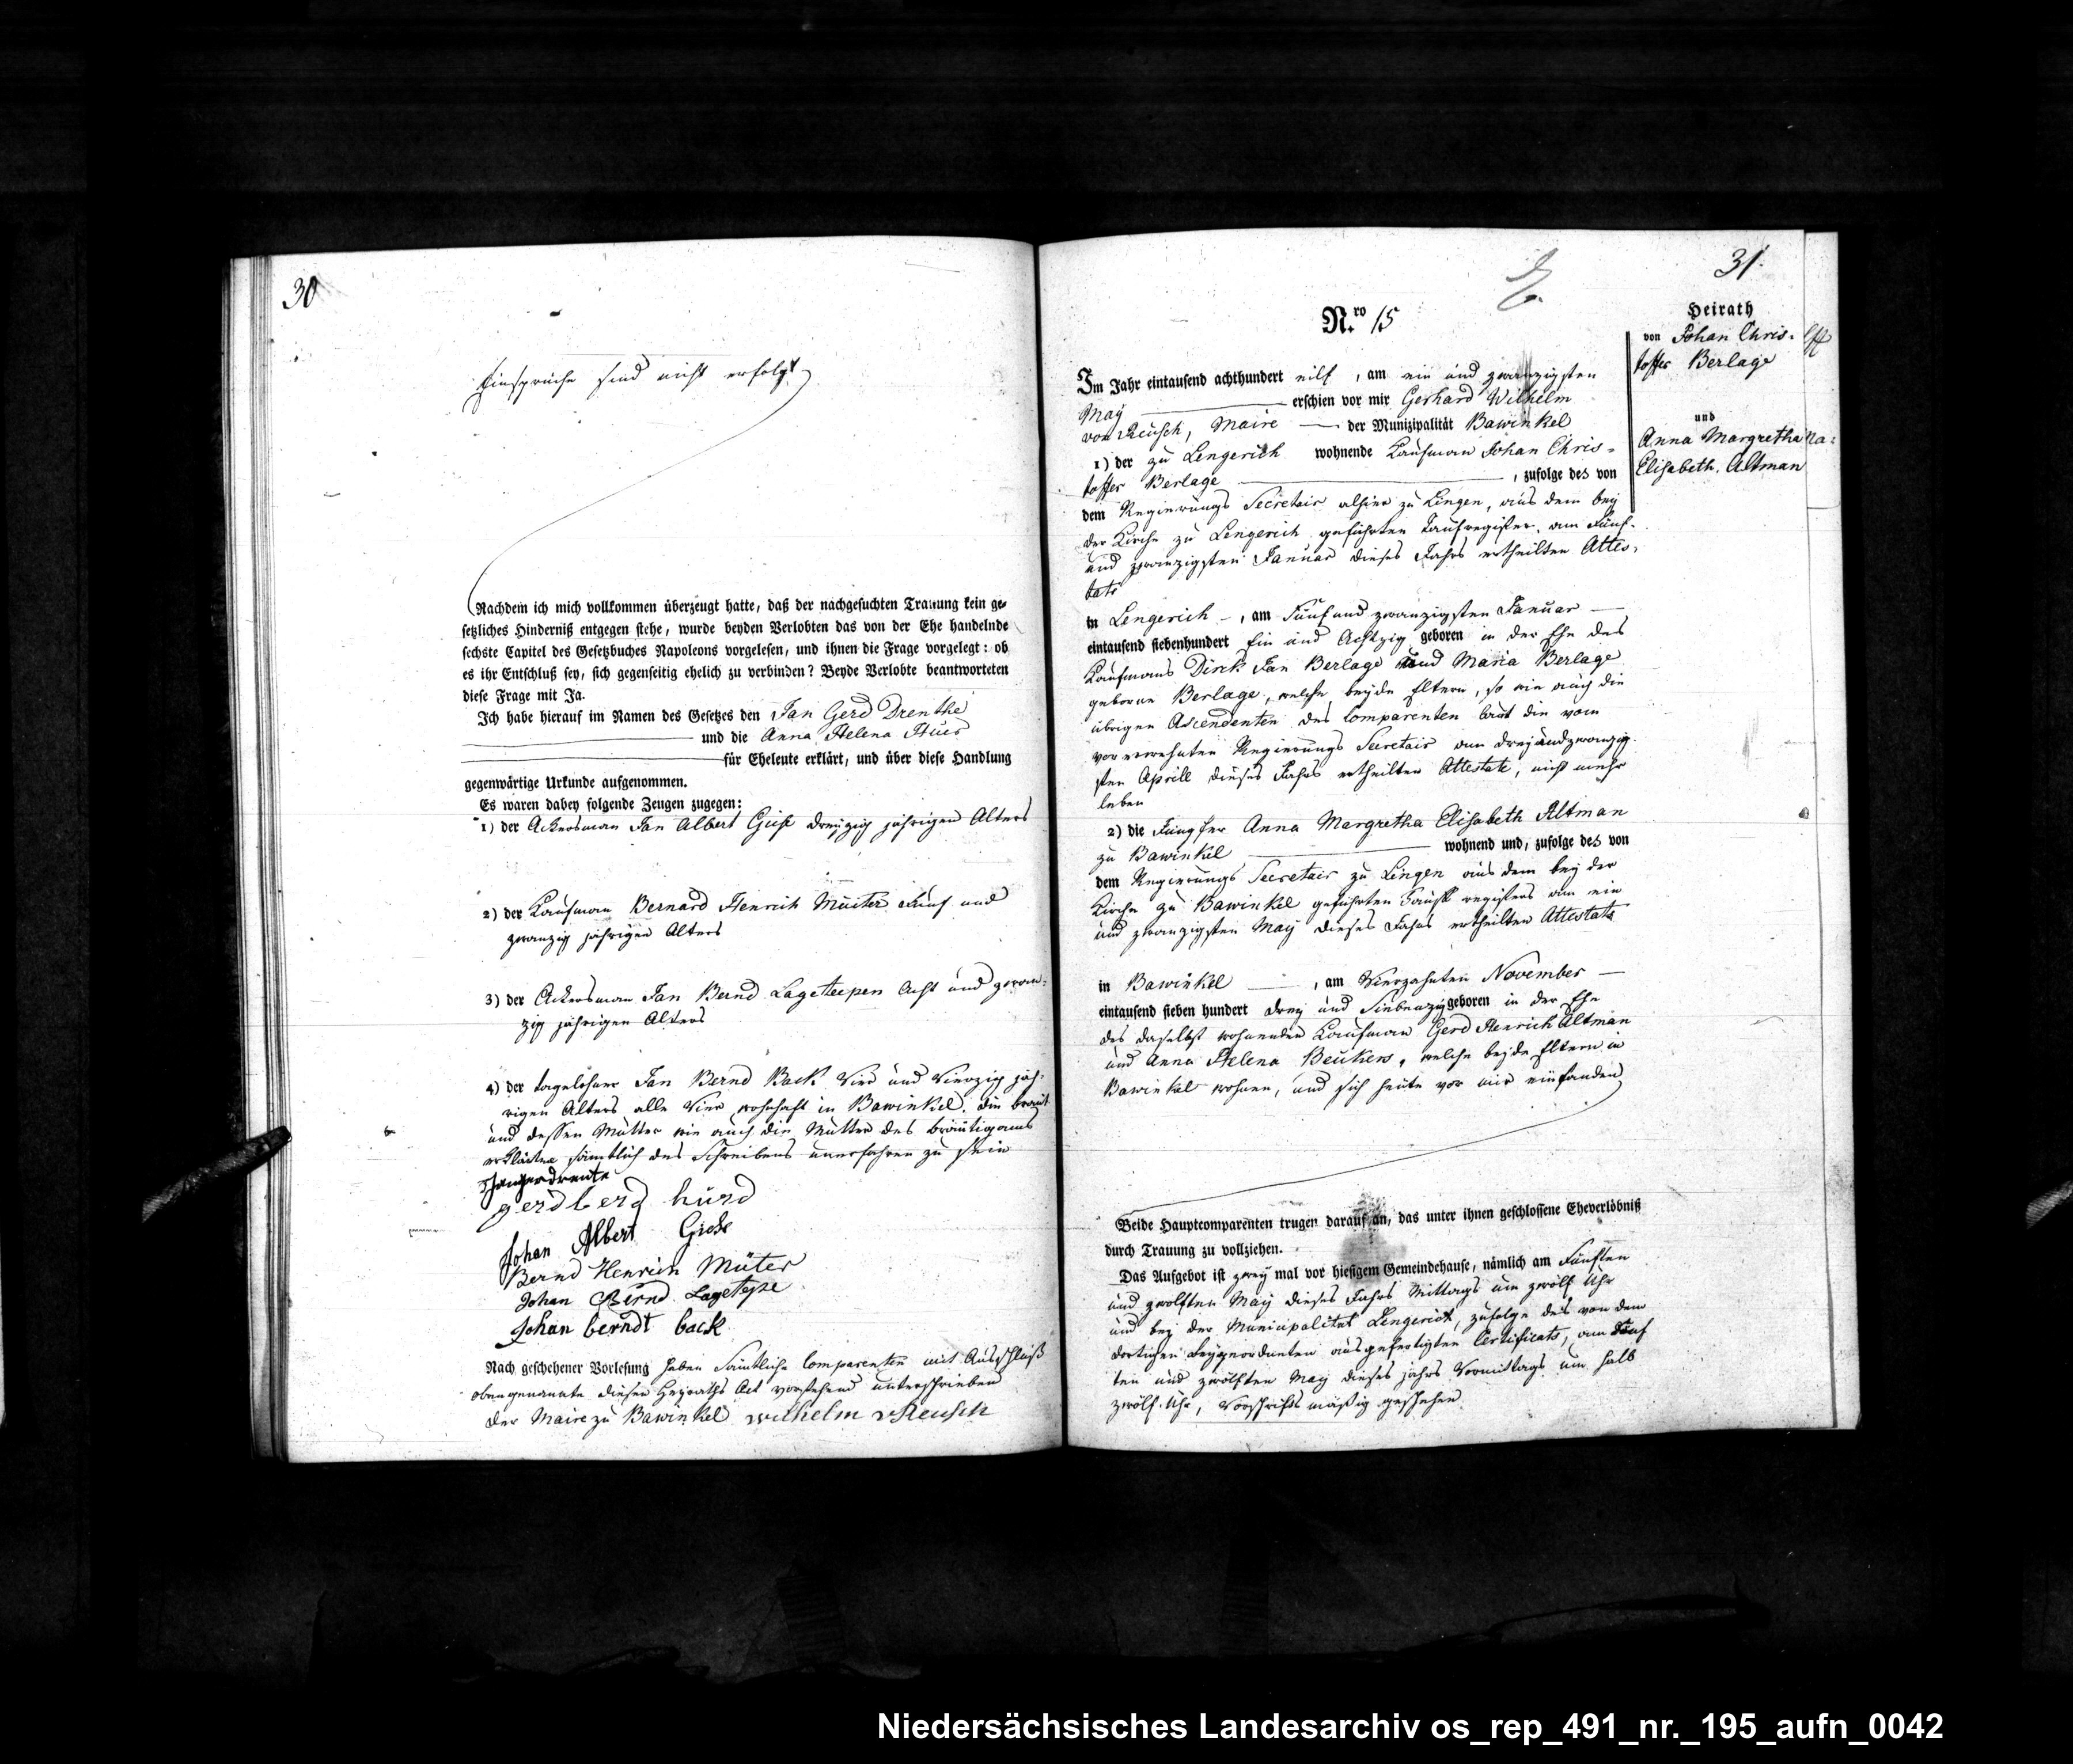 30
Einsprüche sind nicht erfolgt
Nachdem ich mich vollkommen überzeugt hatte, daß der nachgesuchten Trauung kein ge-
setzliches Hinderniß entgegen stehe, wurde beyden Verlobten das von der Ehe handelnde
sechste Capitel des Gesetzbuches Napoleons vorgelesen, und ihnen die Frage vorgelegt: ob
es ihr Entschluß sey, sich gegenseitig ehelich zu verbinden? Beyde Verlobte beantworteten
diese Frage mit Ja.
Ich habe hierauf im Namen des Gesetzes den Jan Gerd Drenthe
und die Anna Helena Hüer
für Eheleute erklärt, und über diese Handlung
gegenwärtige Urkunde aufgenommen.
Es waren dabey folgende Zeugen zugegen:
1) der Ackersman Jan Albert Giese dreyzig jährigen Alters
2) der Kaufman Bernard Henrich Müiter Fünf und
zwanzig jährigen Alters
3) der Ackersman Jan Bernd Lageteepen Acht und zwan-
zig jährigen Alters
4) der tagelöhner Jan Bernd Back Vier und Vierzig jäh-
rigen Alters alle Vier wohnhaft in Bawinkel. die braut
und dessen Mutter wie auch die Mutter des bräutigams
erklärten sämtlich des Schreibens unerfahren zu sein
Jan gerd drente
gerdberd hürd
Johan Albert Giese
Bernd Henrich Müter
Johan Bernd Lagetepe
Johan berndt back
Nach geschehener Vorlesung haben Sämtliche Comparenten mit Ausschluß
obengenannte diesen Heyraths Act vorstehend unterschrieben
der Maire zu Bawinkel Wilhelm v Reusch
31.
Nro. 15
Heirath
von Johan Chris-
toffer Berlage
und
Anna Margretha
Elisabeth. Altman
Im Jahr eintausend achthundert eilf, am ein und zwanzigsten
May erschien vor mir Gerhard Wilhelm
von Reusch, Maire der Munizipalität Bawinkel
1) der zu Lengerich wohnende Kaufman Johan Chris-
toffer Berlage, zufolge des von
dem Regierungs Secretair alhier zu Lingen, aus dem bey
der Kirche zu Lengerich geführten Taufregister, am Fünf-
und zwanzigsten Januar dieses Jahrs ertheilten Attes-
tats
in Lengerich, am Fünf und zwanzigsten Januar
eintausend siebenhundert Ein und Achtzig geboren in der Ehe des
Kaufmans Dirck Jan Berlage und Maria Berlage
geborne Berlage, welche beyde Eltern, so wie auch die
übrigen Ascendenten des Comparenten laut die vom
vorerwehnten Regierungs Secretair am dreyundzwanzig-
sten Aprill dieses Jahrs ertheilten Attestate, nicht mehr
leben
2) die Jungfer Anna Margretha Elisabeth Altman
zu Bawinkel wohnend und, zufolge des von
dem Regierungs Secretair zu Lingen aus dem bey der
Kirche zu Bawinkel geführten Tauff registers am ein
und zwanzigsten May dieses Jahrs ertheilten Attestats
in Bawinkel, am Vierzehnten November
eintausend sieben hundert drey und Siebenzig geboren in der Ehe
des daselbst wohnenden Kaufman Gerd Henrich Altman
und Anna Helena Beukers, welche beyde Eltern in
Bawinkel wohnen, und sich heute vor mir einfanden
Beide Hauptcomparenten trugen darauf an, das unter ihnen geschlossene Eheverlöbniß
durch Trauung zu vollziehen.
Das Aufgebot ist zwey mal vor hiesigem Gemeindehause, nämlich am Fünften
und zwölften May dieses Jahrs Mittags um zwölf Uhr
und bey der Municipalitet Lengerich, zufolge des von dem
dortigen Beygeordneten ausgefertigten Certificats, am Fünf
ten und zwölften May dieses jahrs Vormittags um halb
zwölf Uhr, Vorschriftsmäßig geschehen
Niedersächsisches Landesarchiv os_rep_491_nr._195_aufn_0042